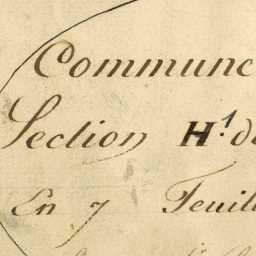 Commune
Section H.1 de
En 7 Feuill